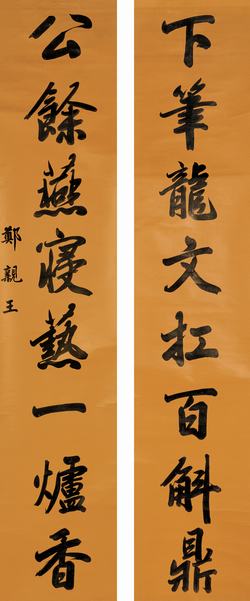 下筆龍文扛百斛鼎
公餘燕寢爇一爐香
鄭親王